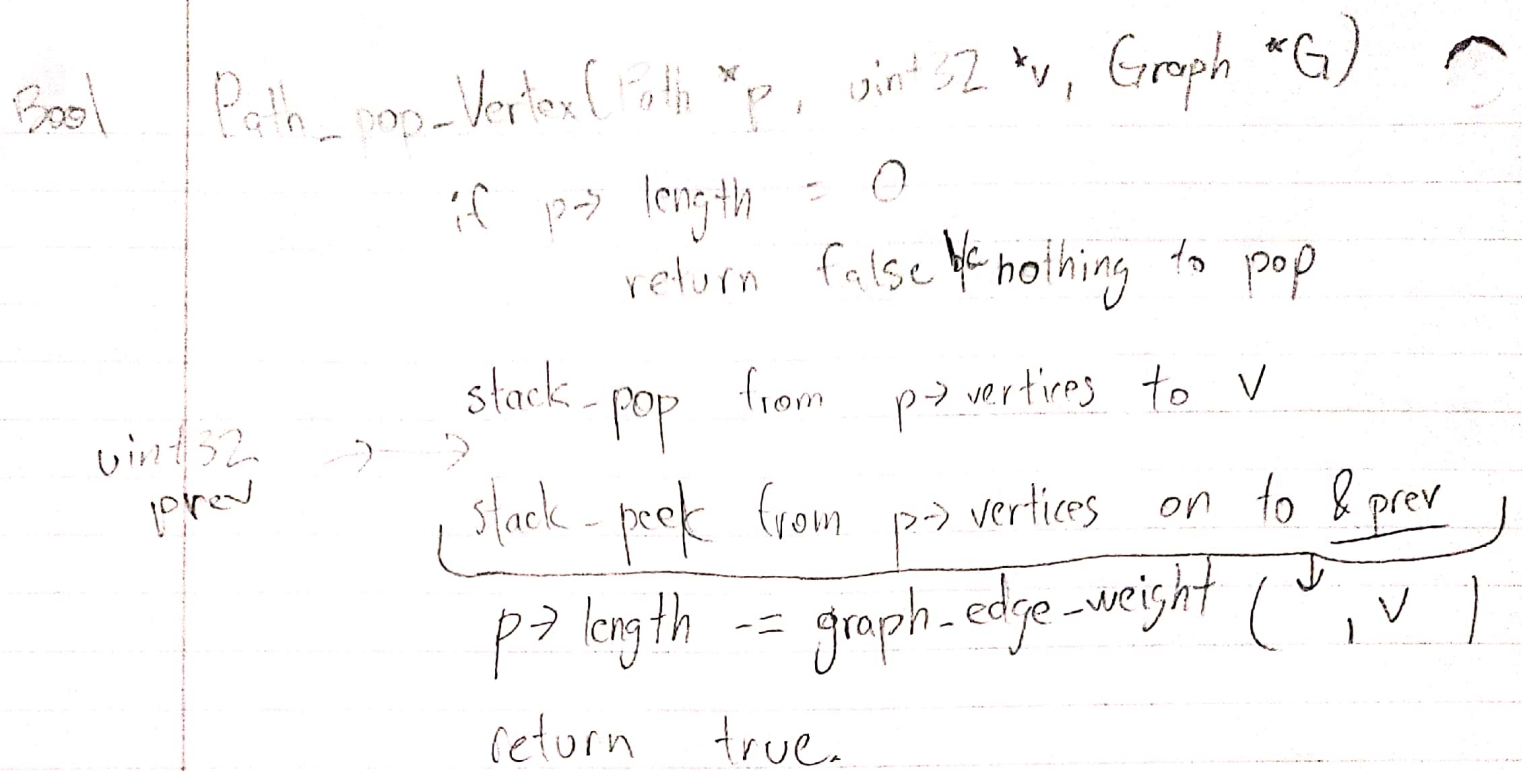 Bool Path_pop_Vertex(Path *p, uint32 *v, Graph *G)
if p→ length = 0
return false b/c nothing to pop
stack_pop from p→ vertices to v
uint32 prev →→
stack_peek from p→ vertices on to & prev
p→ length -= graph_edge_weight ( , v )
return true.